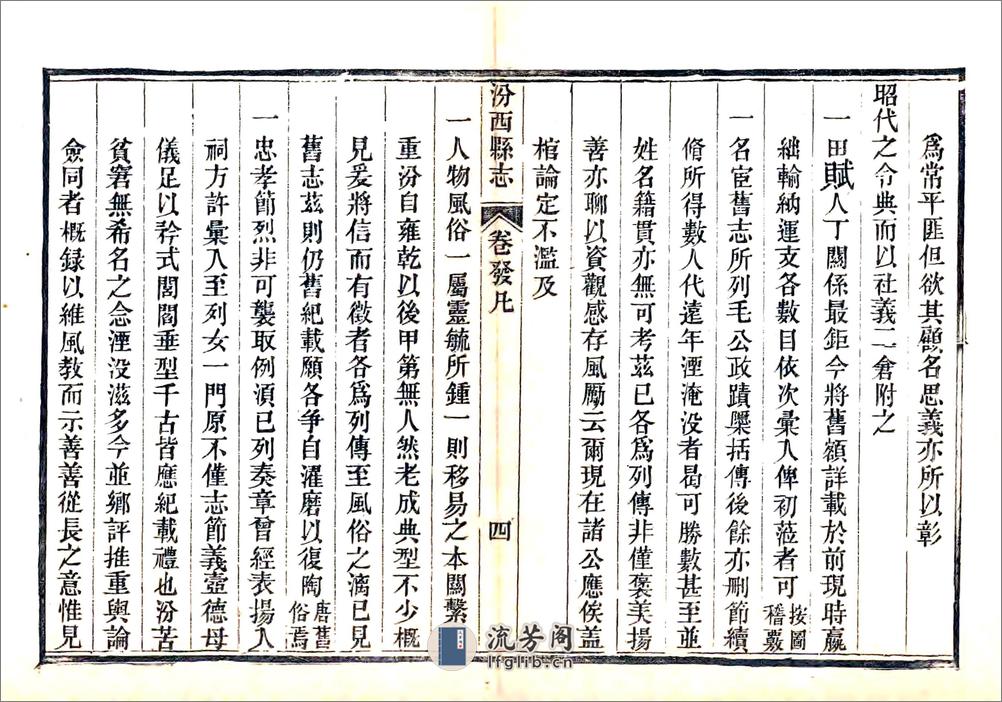 為常平匪但欲其顧名思義亦所以彰
昭代之令典而以社義二倉附之
一田賦人丁關係最鉅今將舊額詳載於前現時嬴
絀輸納運支各數目依次彙入俾初蒞者可按圖稽覈
一名宦舊志所列毛公政蹟櫽括傳後餘亦刪節續
脩所得數人代遠年湮淹没者曷可勝數甚至並
姓名籍貫亦無可考茲已各爲列傳非僅褒美揚
善亦聊以資觀感存風勵云爾現在諸公應俟蓋
棺論定不濫及
汾西縣志 卷發凡 四
一人物風俗一屬靈毓所鍾一則移易之本關繫
重汾自雍乾以後甲第無人然老成典型不少概
見爰將信而有徵者各爲列傳至風俗之漓已見
舊志茲則仍舊紀載願各爭自濯磨以復陶唐舊俗焉
一忠孝節烈非可襲取例湏已列奏章曾經表揚入
祠方許彙入至列女一門原不僅志節義壼德母
儀足以矜式閨閤垂型千古皆應紀載禮也汾苦
貧窘無希名之念湮没滋多今並鄉評推重與論
僉同者概録以維風教而示善善從長之意惟見
流芳阁
lfglib.cn